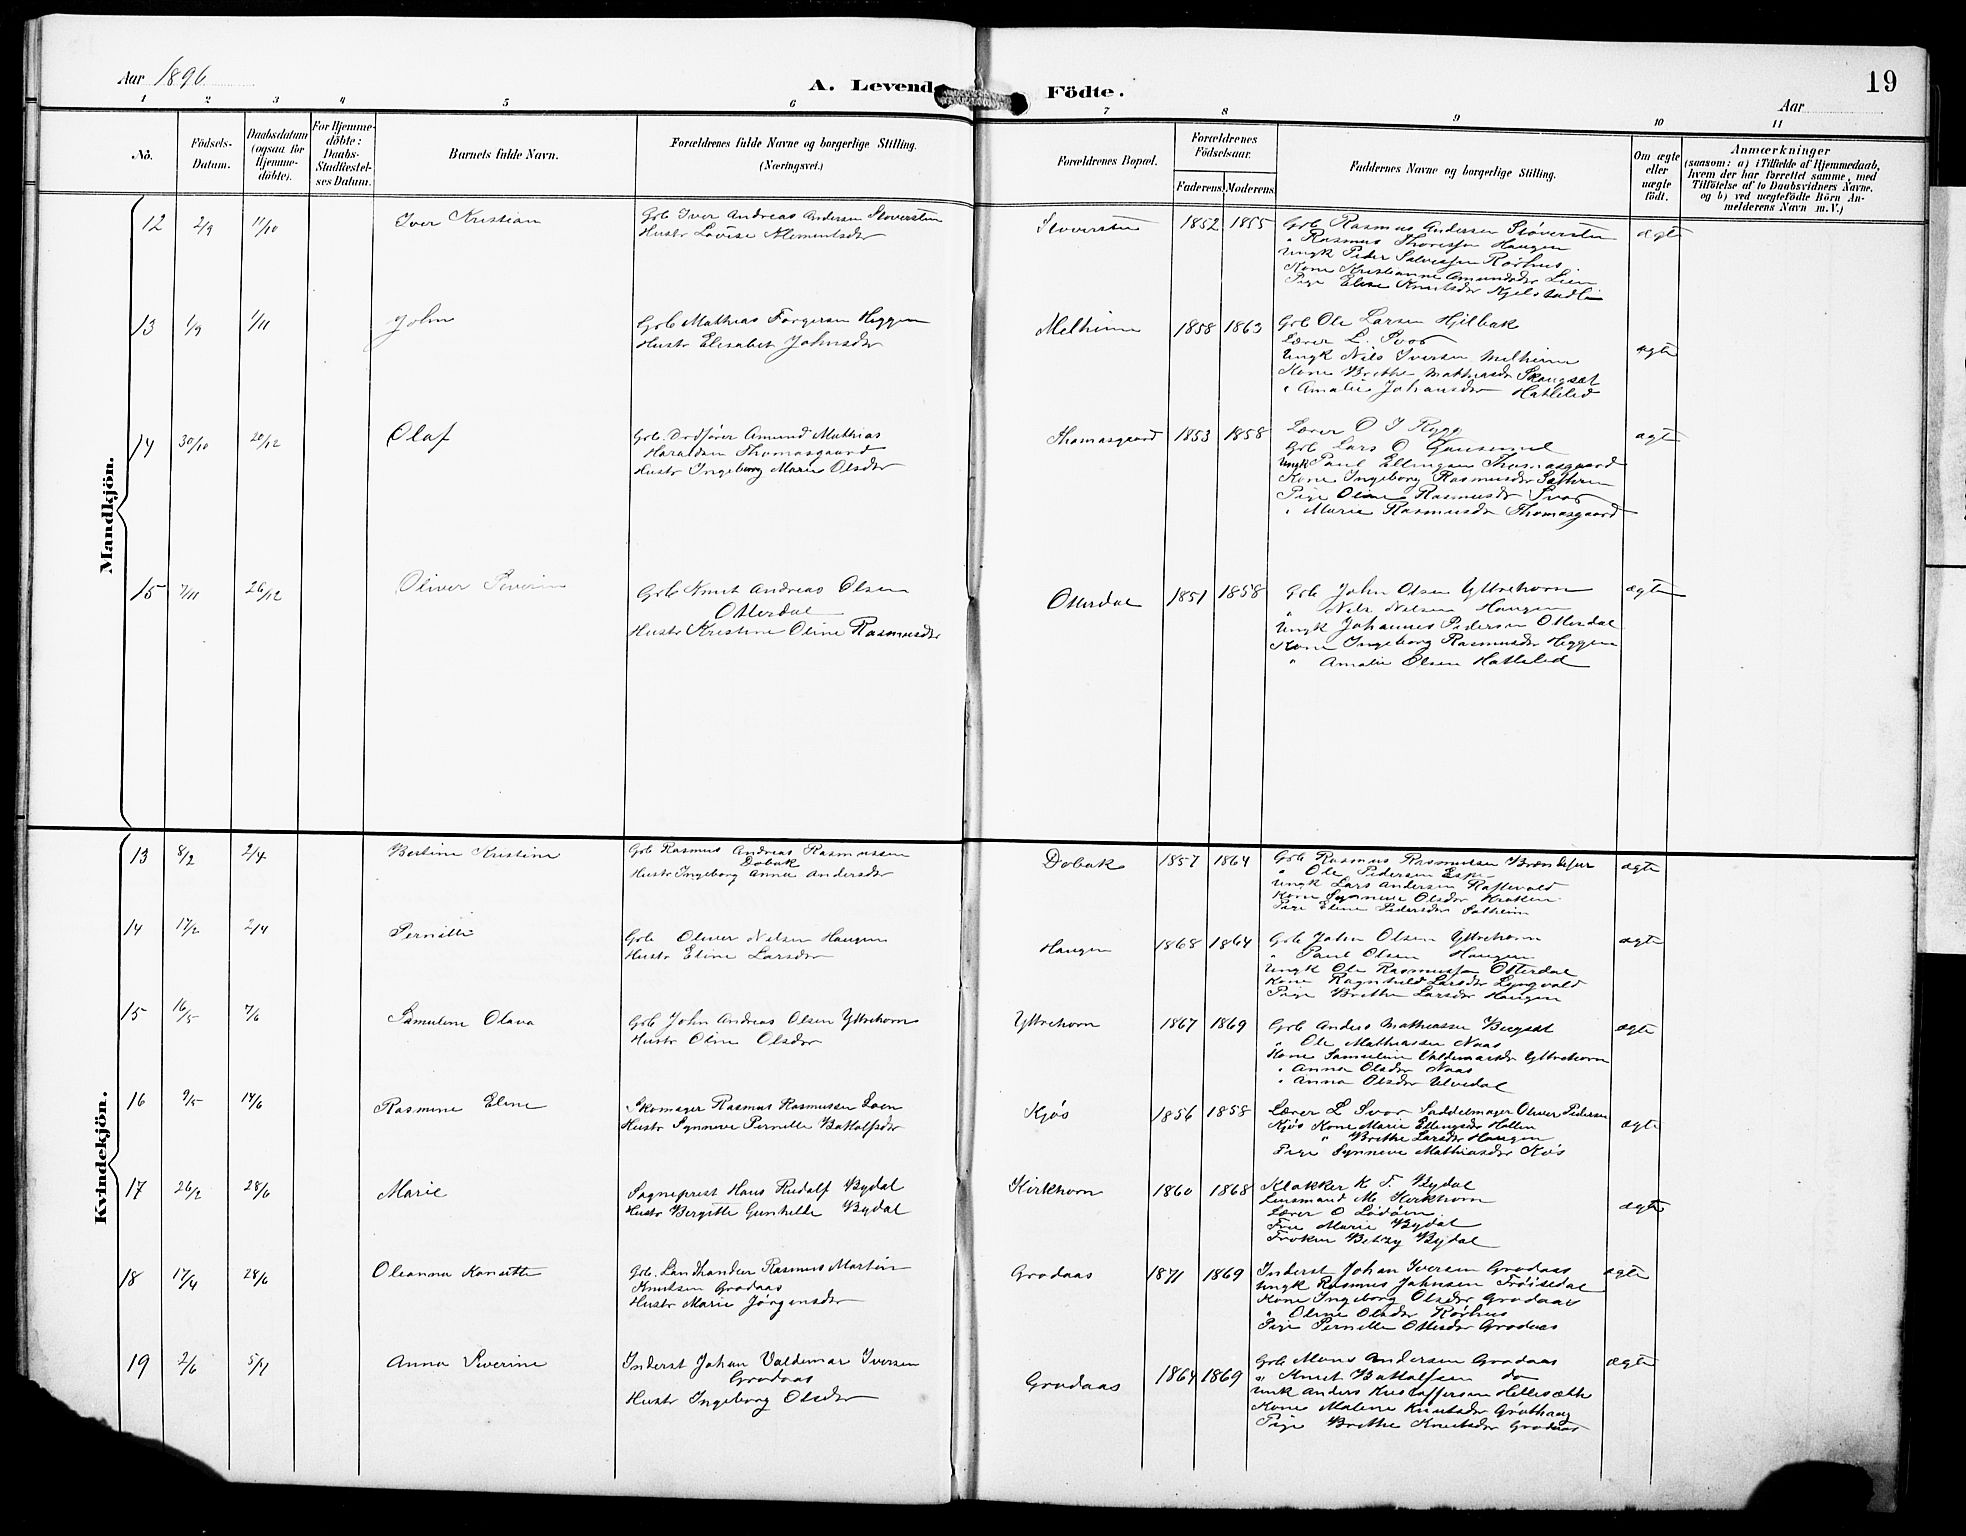 Aar 1896
A. Levende Födte.
19
Aar
1 2 3 4 5 6 7 8 9 10 11
No.
Födsels-Datum.
Daabsdatum (ogsaa for Hjemme-döbte).
For Hjemme-döbte: Daabs-Stadfæstelses Datum.
Barnets fulde Navn.
Forældrenes fulde Navne og borgerlige Stilling.
(Næringsvei.)
Forældrenes Bopæl.
Forældrenes Födselsaar.
Faderens. Moderens.
Faddernes Navne og borgerlige Stilling.
Om ægte eller uægte födt.
Anmærkninger
(saasom: a) i Tilfælde af Hjemmedaab, hvem der har forrettet samme, med Tilföielse af to Daabsvidners Navne, og b) ved uægtefödte Börn Anmelderens Navn m. V.)
Mandkjön.
12 2/9 11/10 Iver Kristian
Grb Iver Andreas Andersen Stoversten
Hustr Lovise Klementsdr
Stoversten 1852 1855
Grb Rasmus Andersen Stöversten
" Rasmus Thoresen Haugen
Ungk Peder Salvesen Rörhus
Kone Kristianne Amundsdr Lien
Pige Eline Knutsdr Kjelstadli
ægte
13 1/9 1/11 John
Grb Mathias Torgersen Heggen
Hustr Elisabet Johnsdr
Melheim 1858 1863
Grb Ole Larsen Hjelbak
Lærer L. Svor
Ungk Nils Iversen Melheim
Kone Brethe Mathiasdr Skaugsæt
" Amalie Johansdr Hatleled
ægte
14 30/10 20/12 Olaf
Grb. Ordfører Amund Mathias
Haraldsen Thomasgaard
Hustr Ingeborg Marie Olsdr
Thomasgaard 1853 1858
Lærer O J Rygg
Grb Lars O Gausemel
Ungk Paul Ellingsen Thomasgaard
Kone Ingeborg Rasmusdr Sætren
Pige Oline Rasmusdr Svor
" Marie Rasmusdr Thomasgaard
ægte
15 7/11 26/12 Oliver Severin
Grb Knut Andreas Olsen
Otterdal
Hustr Kristine Oline Rasmusdr
Otterdal 1851 1858
Grb John Olsen Yttrehorn
" Nils Nilsen Haugen
Ungk Johannes Pedersen Otterdal
Kone Ingeborg Rasmusdr Heggen
" Amalie Olsen Hatleled
ægte
Kvindekjön.
13 8/2 2/4 Bertine Kristine
Grb Rasmus Andreas Rasmussen
Dobak
Hustr Ingeborg Anna Andersdr
Dobak 1857 1864
Grb Rasmus Rasmussen
" Ole Pedersen Espe
Ungk Lars Andersen Raftevold
Kone Synneve Olsdr Kroken
Pige Eline Pedersdr Solheim
ægte
14 17/2 2/4 Pernille
Grb Oliver Nilsen Haugen
Hustr Eline Larsdr
Haugen 1868 1864
Grb John Olsen Yttrehorn
" Paul Olsen Haugen
Ungk Ole Rasmussen Otterdal
Kone Ragnhild Larsdr Lyngvold
Pige Brethe Larsdr Haugen
ægte
15 16/5 7/6 Samuline Olava
Grb John Andreas Olsen Yttrehorn
Hustr Oline Olsdr
Yttrehorn 1867 1869
Grb Anders Mathiassen Bergset
" Ole Mathiassen Naas
Kone Samueline Valdemarsdr Yttrehorn
" Anna Olsdr Naas
" Anna Olsdr Ulvedal
ægte
16 9/5 14/6 Rasmine Eline
Skomager Rasmus Rasmussen Loen
Hustr Synneve Pernille Battolfsdr
Kjós 1856 1858
Lærer L Svor Saddelmager Oliver Pedersen
Kjös Kone Marie Ellingsdr Hellen
" Brethe Larsdr Haugen
Pige Synneve Mathiasdr Kös
ægte
17 26/2 28/6 Marie
Sogneprest Hans Rudolf Bydal
Hustr Bergitte Gunhilde Bydal
Kirkhorn 1860 1868
Klokker K T. Bydal
Lensmand M. Kirkhorn
Lærer O Lödöen
Fru Marie Bydal
Frøken Betzy Bydal
ægte
18 17/4 28/6 Oleanna Kanutte
Grb. Landhandler Rasmus Martin
Knutsen Grodaas
Hustr Marie Jörgensdr
Grodaas 1871 1869
Inderst Johan Iversen Grodaas
Ungk Rasmus Johnsen Fröisedal
Kone Ingeborg Olsdr Grodaas
" Oline Olsdr Rörhus
Pige Pernille Ottesdr Grodaas
ægte
19 2/6 5/7 Anna Severine
Inderst Johan Valdemar Iversen
Grodaas
Hustr Ingeborg Olsdr
Grodaas 1864 1869
Grb Mons Andersen Grodaas
" Knut Battolfsen do
Ungk Anders Kristoffersen Hellesæthe
Kone Malene Knutsdr Gröthaug
Pige Brethe Knutsdr Grodaas
ægte